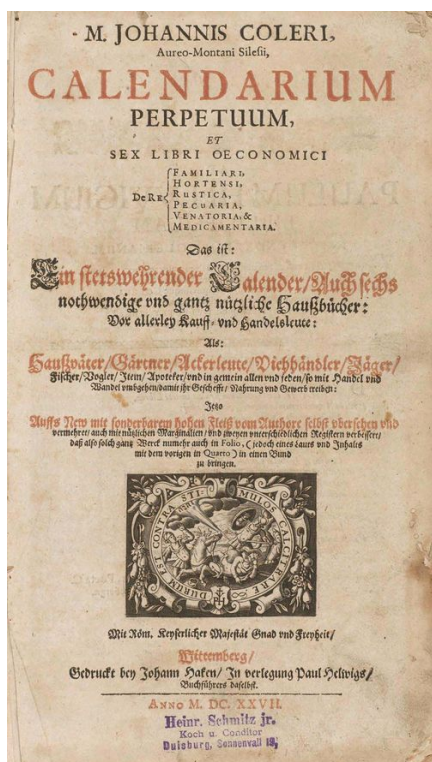 M. JOHANNIS COLERI,
Aureo-Montani Silesii,
CALENDARIUM
PERPETUUM,
ET
SEX LIBRI OECONOMICI
De RE
FAMILIARI,
HORTENSI,
RUSTICA,
PECUARIA,
VENATORIA, &
MEDICAMENTARIA.
Das ist:
Ein stetswehrender Calender/Auch sechs
nothwendige vnd gantz nützliche Haußbücher:
Vor allerley Kauff- vnd Handelsleute:
Als:
Haußväter/Gärtner/Ackerleute/Viehhändler/Jäger/
Fischer/Vogler/Item/Apoteker/vnd in gemein allen vnd jeden/so mit Handel vnd
Wandel vmbgehen/damit ihr Gescheffte/Nahrung vnd Gewerb treiben:
Jetzo
Auffs New mit sonderbarem hohen Fleiß vom Authore selbst vbersehen vnd
vermehret/auch mit nützlichen Marginalien/vnd zweyen vnterschiedlichen Registern verbessert/
daß also solch gantz Werck numehr auch in Folio, (jedoch eines Lauts vnd Inhalts
mit dem vorigen in Quarto) in einen Bund
zu bringen.
DURUM EST CONTRA STIMULOS CALCITRARE
Mit Röm. Keyserlicher Majestät Gnad vnd Freyheit/
Wittemberg/
Gedruckt bey Johann Haken/In verlegung Paul Helwigs/
Buchführers daselbst.
ANNO M. DC. XXVII.
Heinr. Schmitz jr.
Koch u. Conditor
Duisburg, Sonnenwall 19,